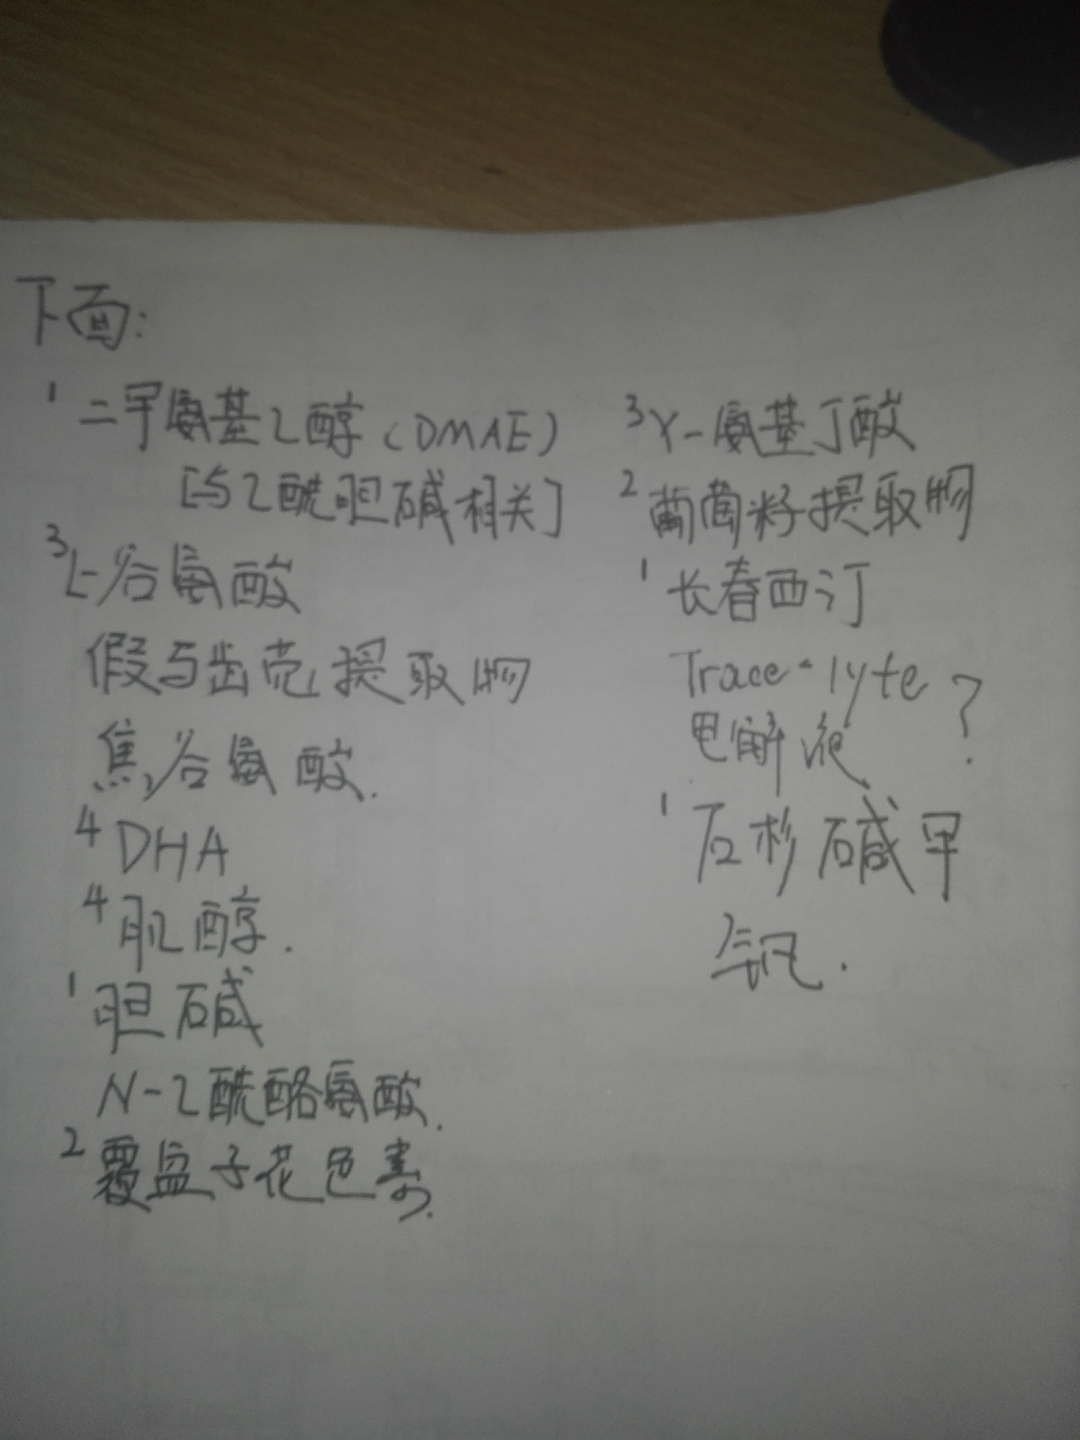 下面:
1 二甲氨基乙醇(DMAE)
[与乙酰胆碱相关]
3 L-谷氨酸
假与齿苋提取物
焦谷氨酸.
4 DHA
4 肌醇.
1 胆碱
N-乙酰酪氨酸.
2 覆盆子花色素.
3 γ-氨基丁酸
2 葡萄籽提取物
1 长春西汀
Trace-lyte
电解液 ?
1 石杉碱甲